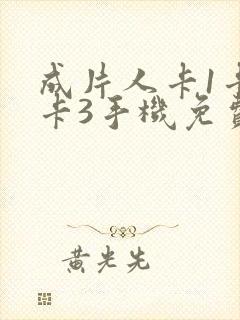 成片人卡1卡
卡3手機免費
黄光先